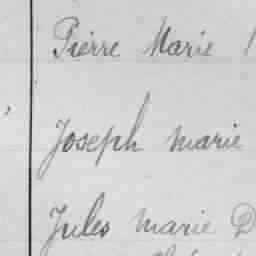 Pierre Marie
Joseph marie
Jules marie D